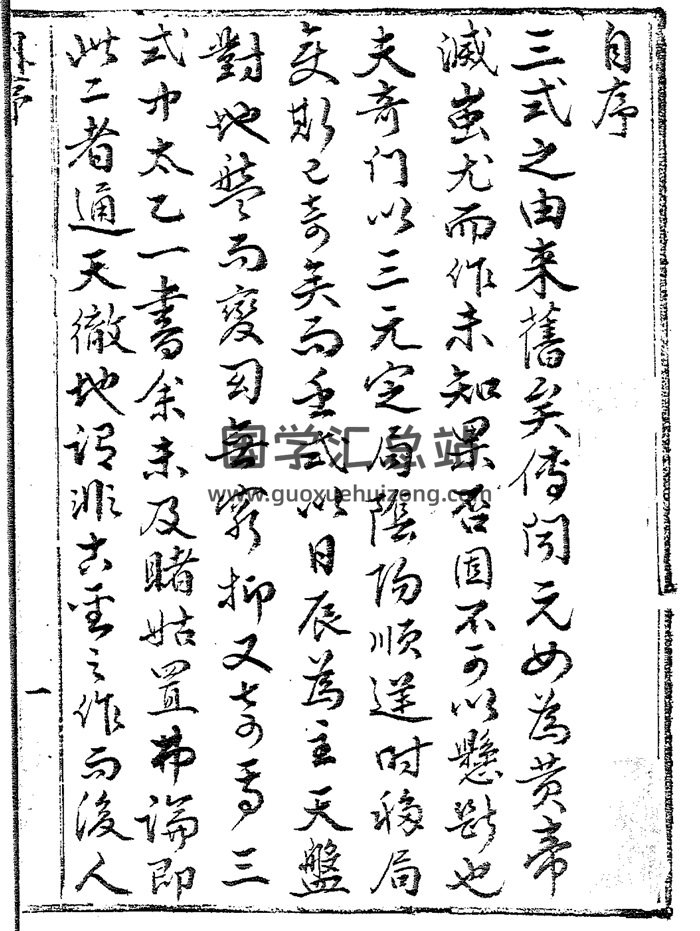 自序
三式之由来舊矣傳聞元女為黄帝
滅蚩尤而作未知果否固不可以懸斷也
夫奇门以三元定局陰陽順逆时移局
变斯已奇矣而壬式以日辰為主天盤
對地盤而變動無窮抑又奇焉三
式中太乙一書余未及睹姑置弗論即
此二者通天徹地谓非古聖之作而後人
自序
一
国学汇总站
www.guoxuehuizong.com